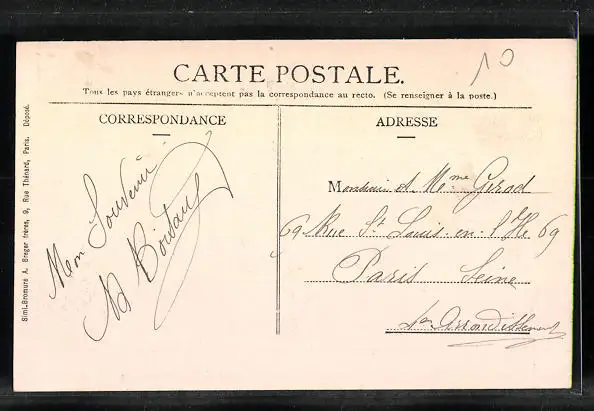 10
CARTE POSTALE.
Tous les pays étrangers n'acceptent pas la correspondance au recto. (Se renseigner à la poste.)
CORRESPONDANCE
Mon Souvenir
ADRESSE
Monsieur et Mme Gerod
69 Rue St Louis en l'Ile 69
Paris Seine
Arrondissement
Siml.Bromure A. Breger frères, 9, Rue Thénard, Paris. Déposé.